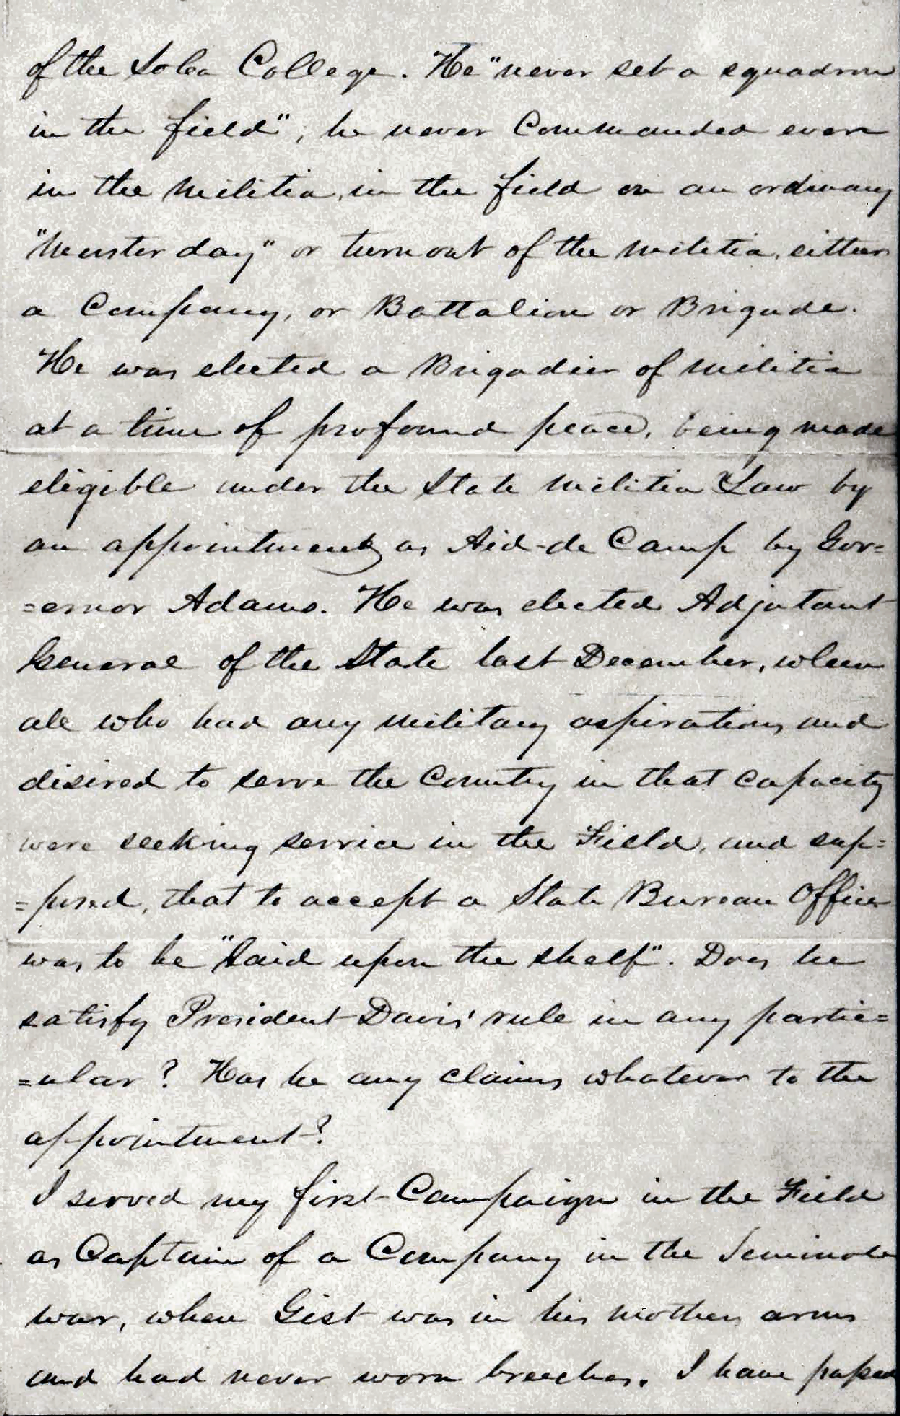 of the So Ca College. He "never set a squadron
in the field", he never Commanded even
in the Militia, in the field on an ordinary
"Muster day" or turn out of the Militia, either
a Company, or Battalion or Brigade.
He was elected a Brigadier of Militia
at a time of profound peace, being made
eligible under the State Militia Law by
an appointment as Aid-de Camp by Gov=
=ernor Adams. He was elected Adjutant
General of the State last December, when
all who had any military aspirations and
desired to serve the Country in that capacity
were seeking service in the Field, and sup=
=posed, that to accept a State Bureau Office
was to be "laid upon the shelf". Does he
satisfy President Davis' rule in any partic=
=ular? Has he any claims whatever to the
appointment?
I served my first Campaign in the Field
as Captain of a Company in the Seminole
war, when Gist was in his mothers arms
and had never worn breeches. I have passed